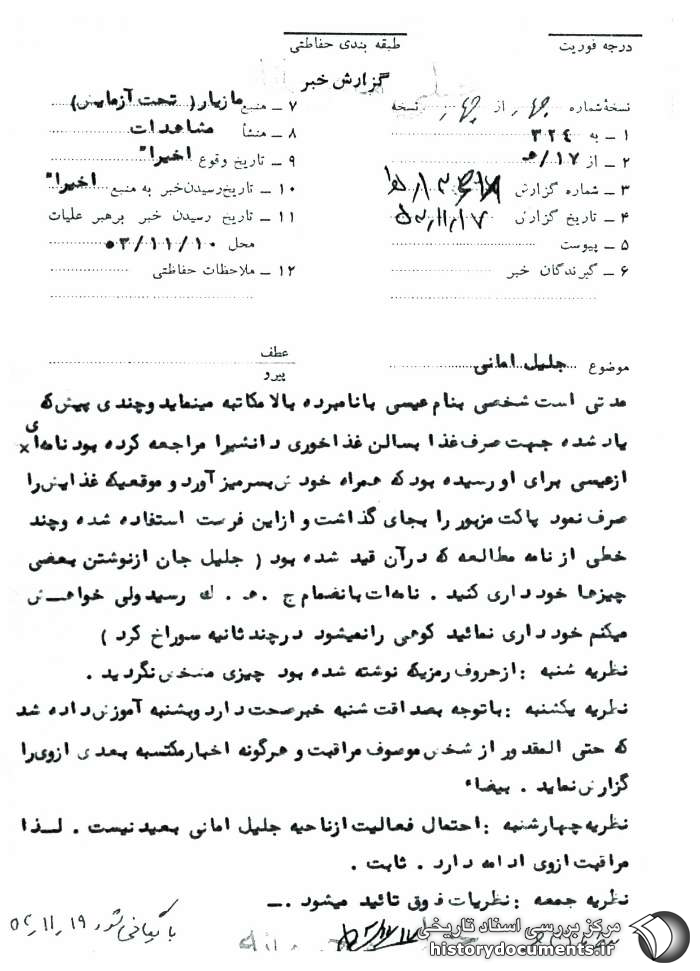 درجه فوریت
طبقه بندی حفاظتی
گزارش خبر
نسخهٔ شماره از نسخه
۱ ـ به ۳۲۴
۲ ـ از ۱۷/هـ
۳ ـ شماره گزارش
۴ ـ تاریخ گزارش
۵ ـ پیوست
۶ ـ گیرندگان خبر
۷ ـ منبع مازیار( تحت آزمایش)
۸ ـ منشأ مشاهدات
۹ ـ تاریخ وقوع اخیرا"
۱۰ ـ تاریخ رسیدن خبر به منبع اخیرا"
۱۱ ـ تاریخ رسیدن خبر برهبر علیات
محل ۵۳/۱۱/۱۰
۱۲ ـ ملاحظات حفاظتی
موضوع جلیل امانی
عطف
پیرو
مدتی است شخصی بنام عیسی با نامبرده بالا مکاتبه مینماید وچندی پیش که
یاد شده جهت صرف غذا بسالن غذاخوری دانشسرا مراجعه کرده بود نامه‌ای
ازعیسی برای او رسیده بود که همراه خودش بسرمیز آورد و موقعیکه غذایش را
صرف نمود پاکت مزبور را بجای گذاشت و ازاین فرصت استفاده شده وچند
خطی از نامه مطالعه که درآن قید شده بود ( جلیل جان ازنوشتن بعضی
چیزها خود داری کنید . نامه‌ات بانضمام ج .هـ . ک رسید ولی خواهش
میکنم خود داری نمائید کوهی را نمیشود درچند ثانیه سوراخ کرد )
نظریه شنبه : ازحروف رمزیکه نوشته شده بود چیزی مشخص نگردید .
نظریه یکشنبه : باتوجه بصداقت شنبه خبرصحت دارد وبشنبه آموزش داده شد
که حتی المقدور از شخص موصوف مراقبت و هرگونه اخبارمکتسبه بعدی ازوی را
گزارش نماید . بیضاء
نظریه چهارشنبه : احتمال فعالیت ازناحیه جلیل امانی بعید نیست . لذا
مراقبت ازوی ادامه دارد . ثابت .
نظریه جمعه : نظریات فوق تائید میشود .ـ
مرکز بررسی اسناد تاریخی
historydocuments.ir